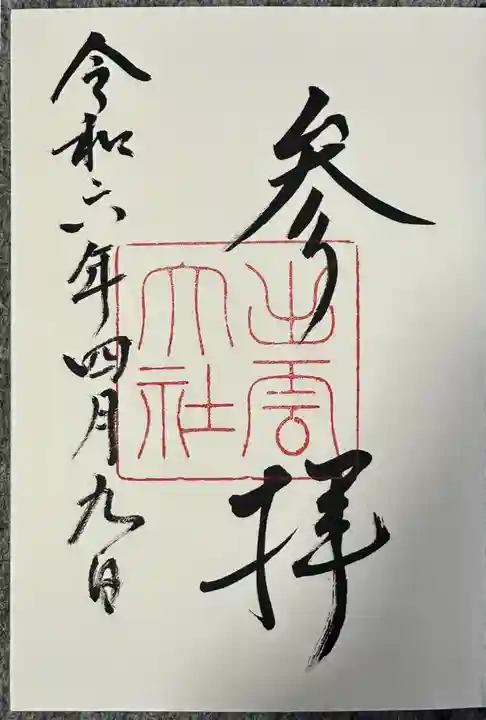 参拝
出雲
大社
令和六年四月九日